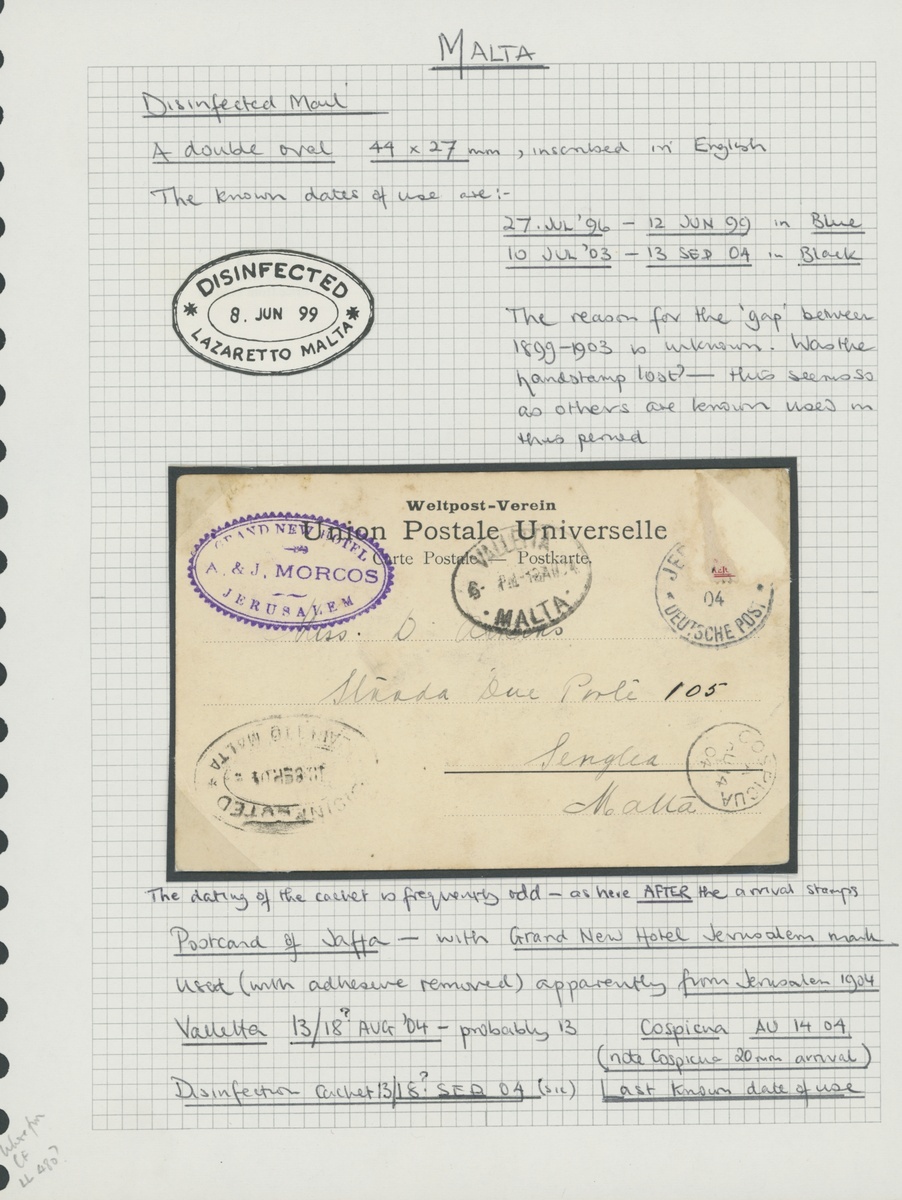 MALTA
Disinfected Mail
A double oval 44 x 27 mm, inscribed in English
The known dates of use are:-
27.JUL '96 – 12 JUN 99 in Blue
10 JUL '03 – 13 SEP 04 in Black
DISINFECTED
* 8. JUN 99 *
LAZARETTO MALTA
The reason for the 'gap' between
1899–1903 is unknown. Was the
handstamp lost? — this seems so
as others are known used in
this period
Weltpost-Verein
Union Postale Universelle
Carte Postale — Postkarte.
GRAND NEW HOTEL
A. & J. MORCOS
JERUSALEM
VALLETTA
6- PM-
MALTA
JER
04
DEUTSCHE POST
Miss. D.
Strada Due Porte 105
Senglea
Malta
COSPICUA
AU 14
04
DISINFECTED
MALTA
The dating of the cachet is frequently odd – as here AFTER the arrival stamps
Postcard of Jaffa — with Grand New Hotel Jerusalem mark
used (with adhesive removed) apparently from Jerusalem 1904
Valletta 13/18? AUG '04 – probably 13 Cospicua AU 14 04
(note Cospicua 20mm arrival)
Disinfection Cachet 13/18? SEP 04 (sic) Last known date of use